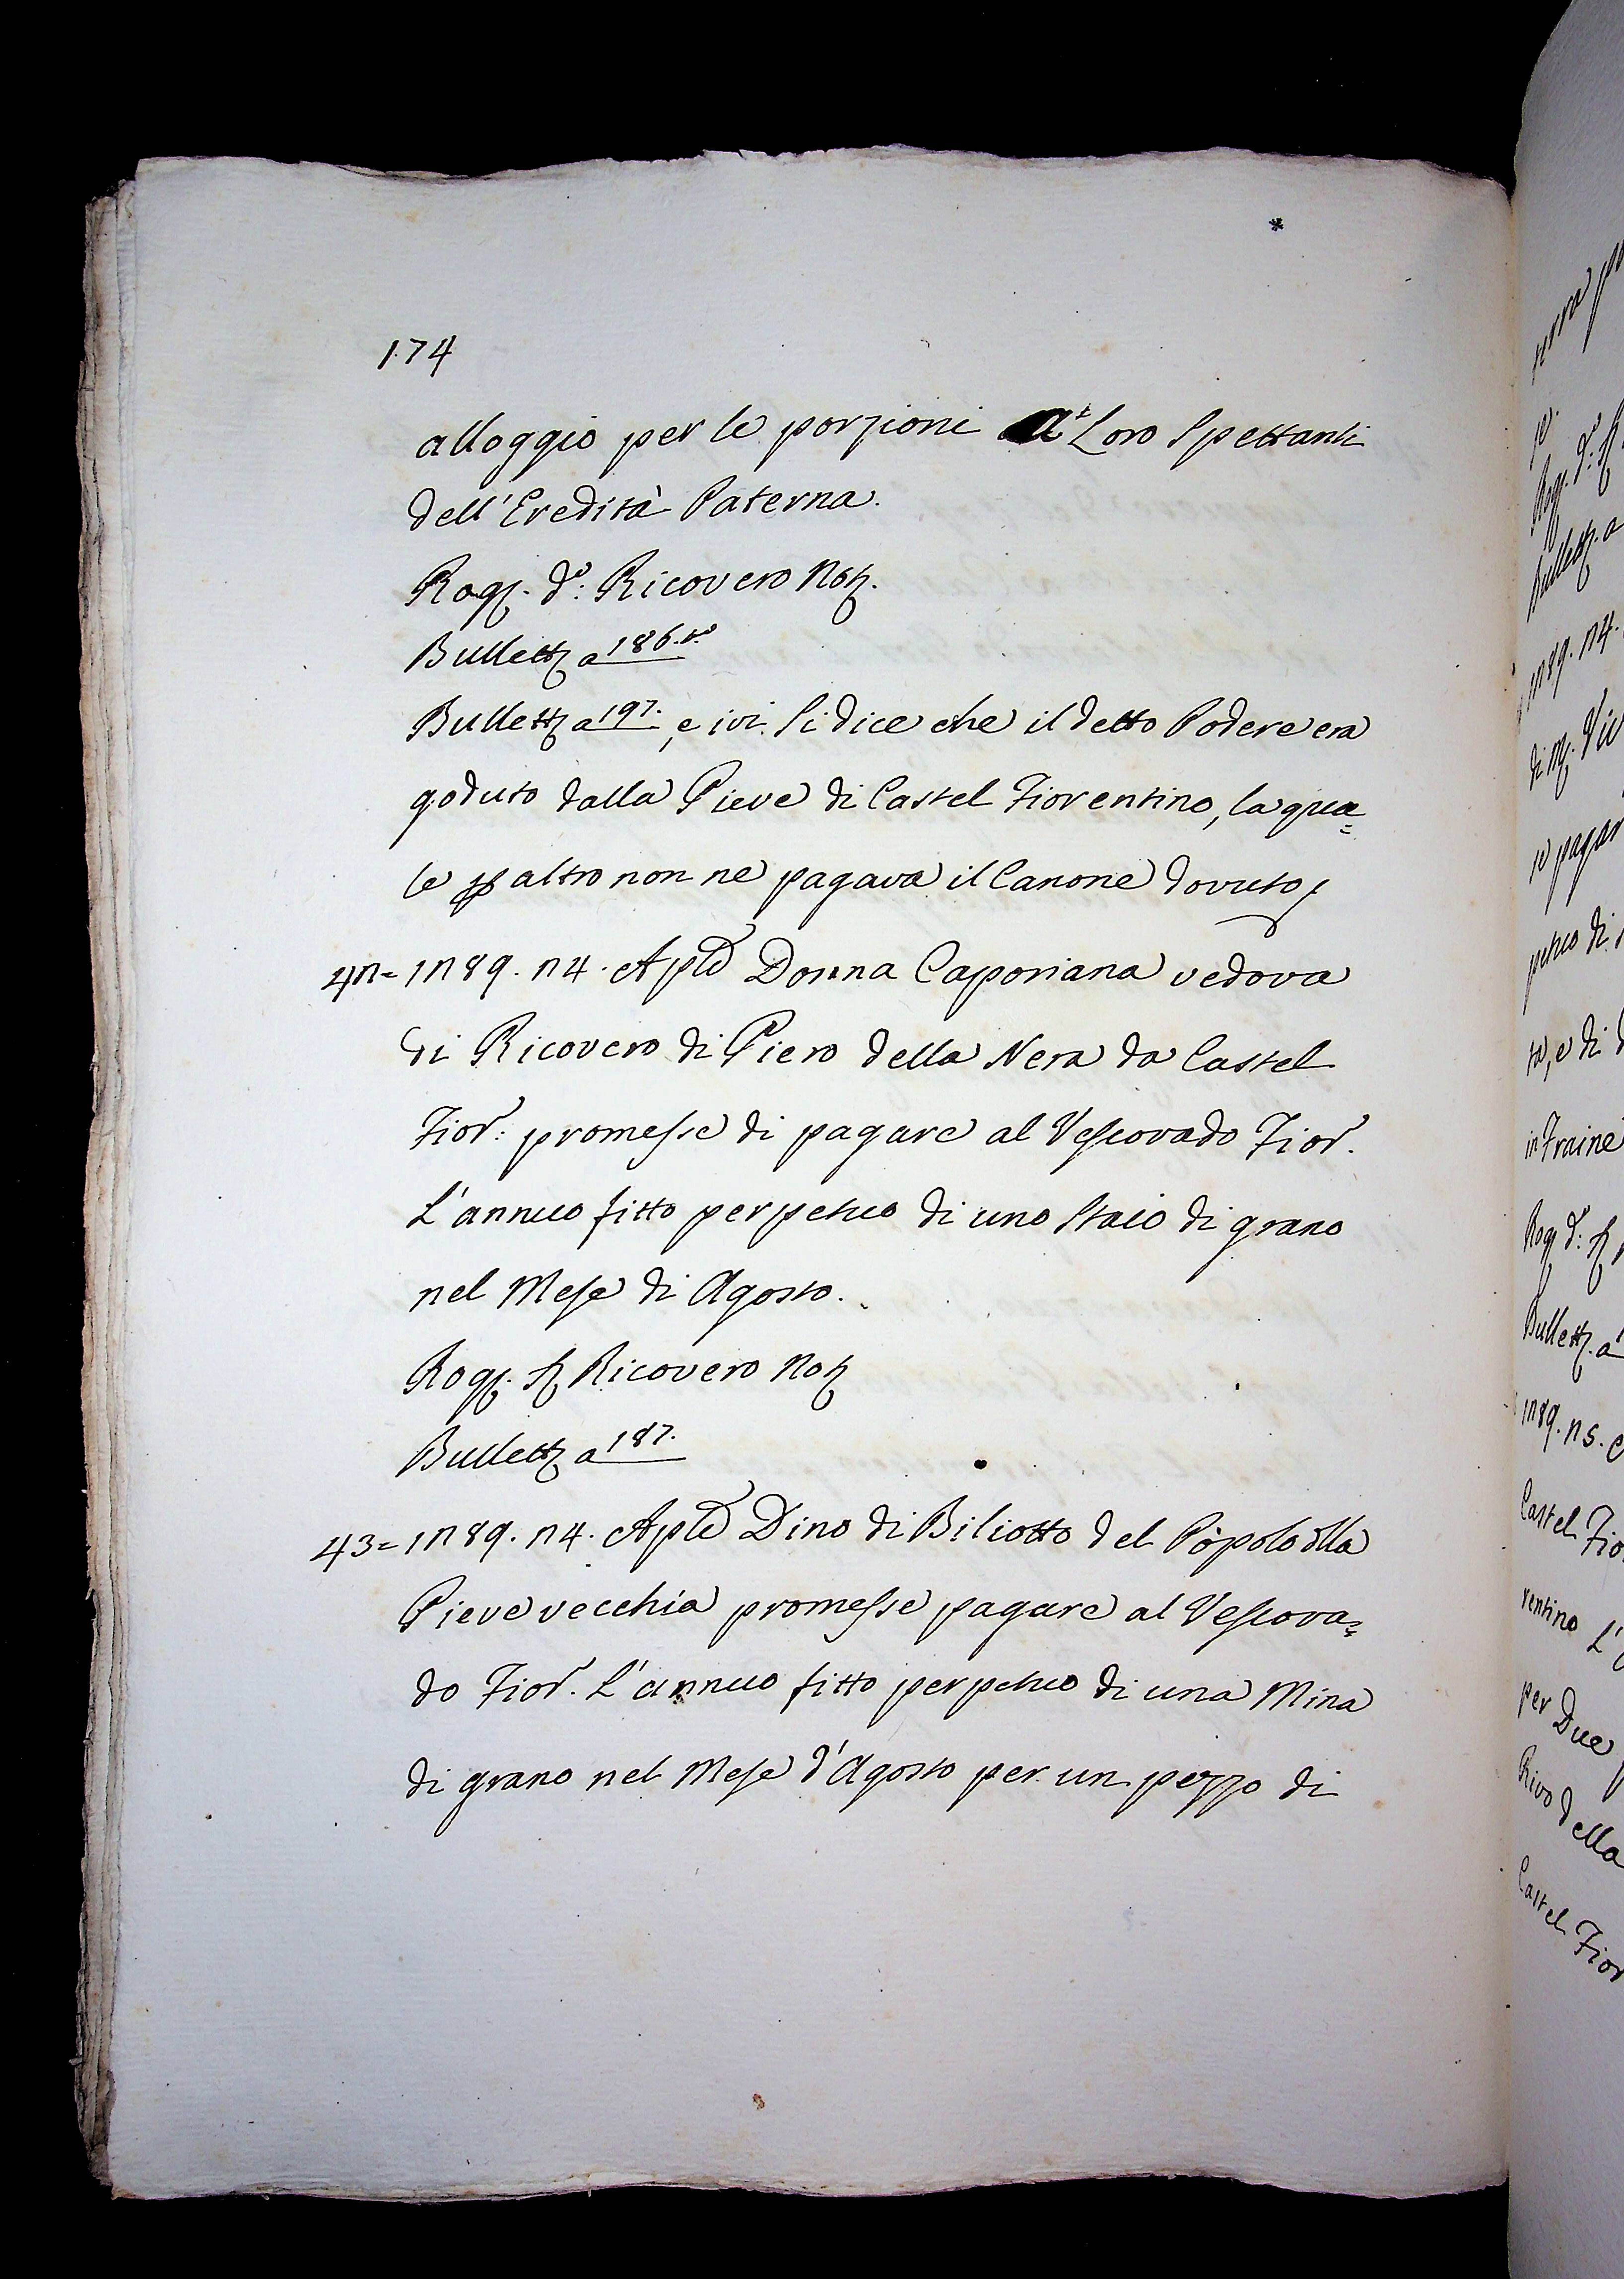 174
alloggio per le porzioni a Loro Spettanti
dell'Eredità Paterna.
Rog. d.o: Ricovero Not.
Bullett. a 186. v.o
Bullett. a 197., e ivi Si dice che il detto Podere era
goduto dalla Pieve di Castel Fiorentino, la qua=
le p altro non ne pagava il Canone dovuto
42= 1289. 24. Aple Donna Caporiana vedova
di Ricovero di Piero della Nera da Castel
Fior: promesse di pagare al Vescovado Fior.
L'annuo fitto perpetuo di uno Staio di grano
nel Mese di Agosto.
Rog. Ricovero Not
Bullett. a 187.
43= 1289. 24. Aple Dino di Biliotto del Popolo dlla
Pieve vecchia promesse pagare al Vescova=
do Fior. L'annuo fitto perpetuo di una Mina
di grano nel Mese d'Agosto per un pezzo di